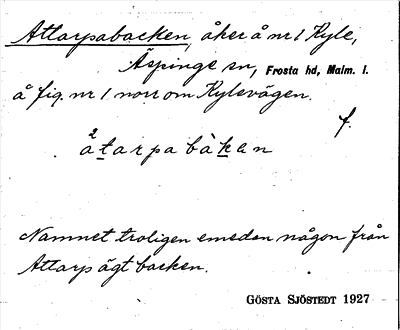 Attarpsabacken, åker å nr 1 Kyle,
Äspinge sn, Frosta hd, Malm. l.
å fig. nr 1 norr om Kylevägen.
f.
2
åtarpabàken
Namnet troligen emedan någon från
Attarp ägt backen.
GÖSTA SJÖSTEDT 1927